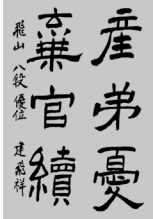 産弟憂
棄官續
飛山 八段 優位 建飛祥